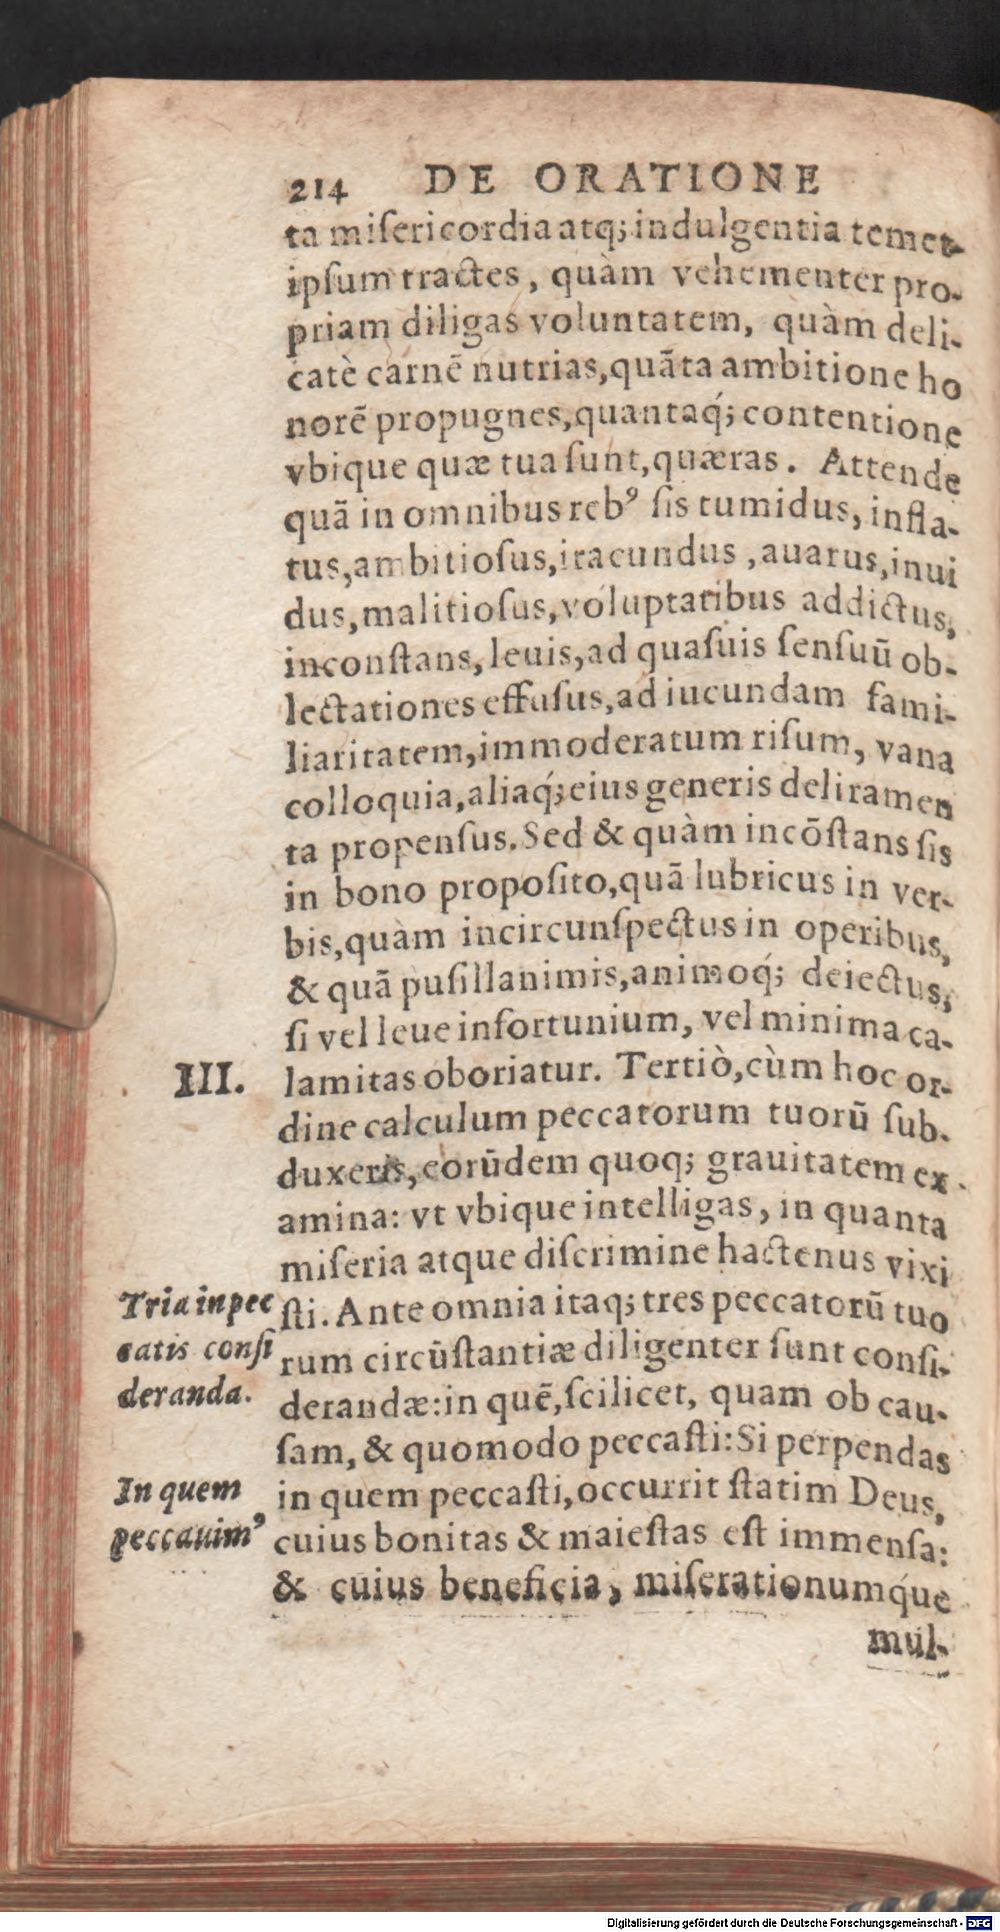 214 DE ORATIONE
ta miſericordia atq́; indulgentia temet-
ipſum tractes, quàm vehementer pro-
priam diligas voluntatem, quàm deli-
catè carnē nutrias, quāta ambitione ho
norē propugnes, quantaq́; contentione
vbique quæ tua ſunt, quæras. Attende
quā in omnibus rebꝰ ſis tumidus, infla-
tus, ambitioſus, iracundus, auarus, inui
dus, malitioſus, voluptatibus addictus,
inconſtans, leuis, ad quaſuis ſenſuū ob-
lectationes effuſus, ad iucundam fami-
liaritatem, immoderatum riſum, vana
colloquia, aliaq́; eius generis deliramen
ta propenſus. Sed & quàm incōſtans ſis
in bono propoſito, quā lubricus in ver-
bis, quàm incircunſpectus in operibus,
& quā puſillanimis, animoq́; deiectus,
ſi vel leue infortunium, vel minima ca-
III. lamitas oboriatur. Tertiò, cùm hoc or-
dine calculum peccatorum tuorū ſub-
duxeris, eorūdem quoq; grauitatem ex-
amina: vt vbique intelligas, in quanta
miſeria atque diſcrimine hactenus vixi
Tria in pec
catis conſi
deranda.
ſti. Ante omnia itaq; tres peccatorū tuo
rum circūſtantiæ diligenter ſunt conſi-
derandæ: in quē, ſcilicet, quam ob cau-
ſam, & quomodo peccaſti: Si perpendas
In quem
peccauimꝰ
in quem peccaſti, occurrit ſtatim Deus,
cuius bonitas & maieſtas eſt immenſa:
& cuius beneficia, miſerationumq́ue
mul-
Digitalisierung gefördert durch die Deutsche Forschungsgemeinschaft - DFG